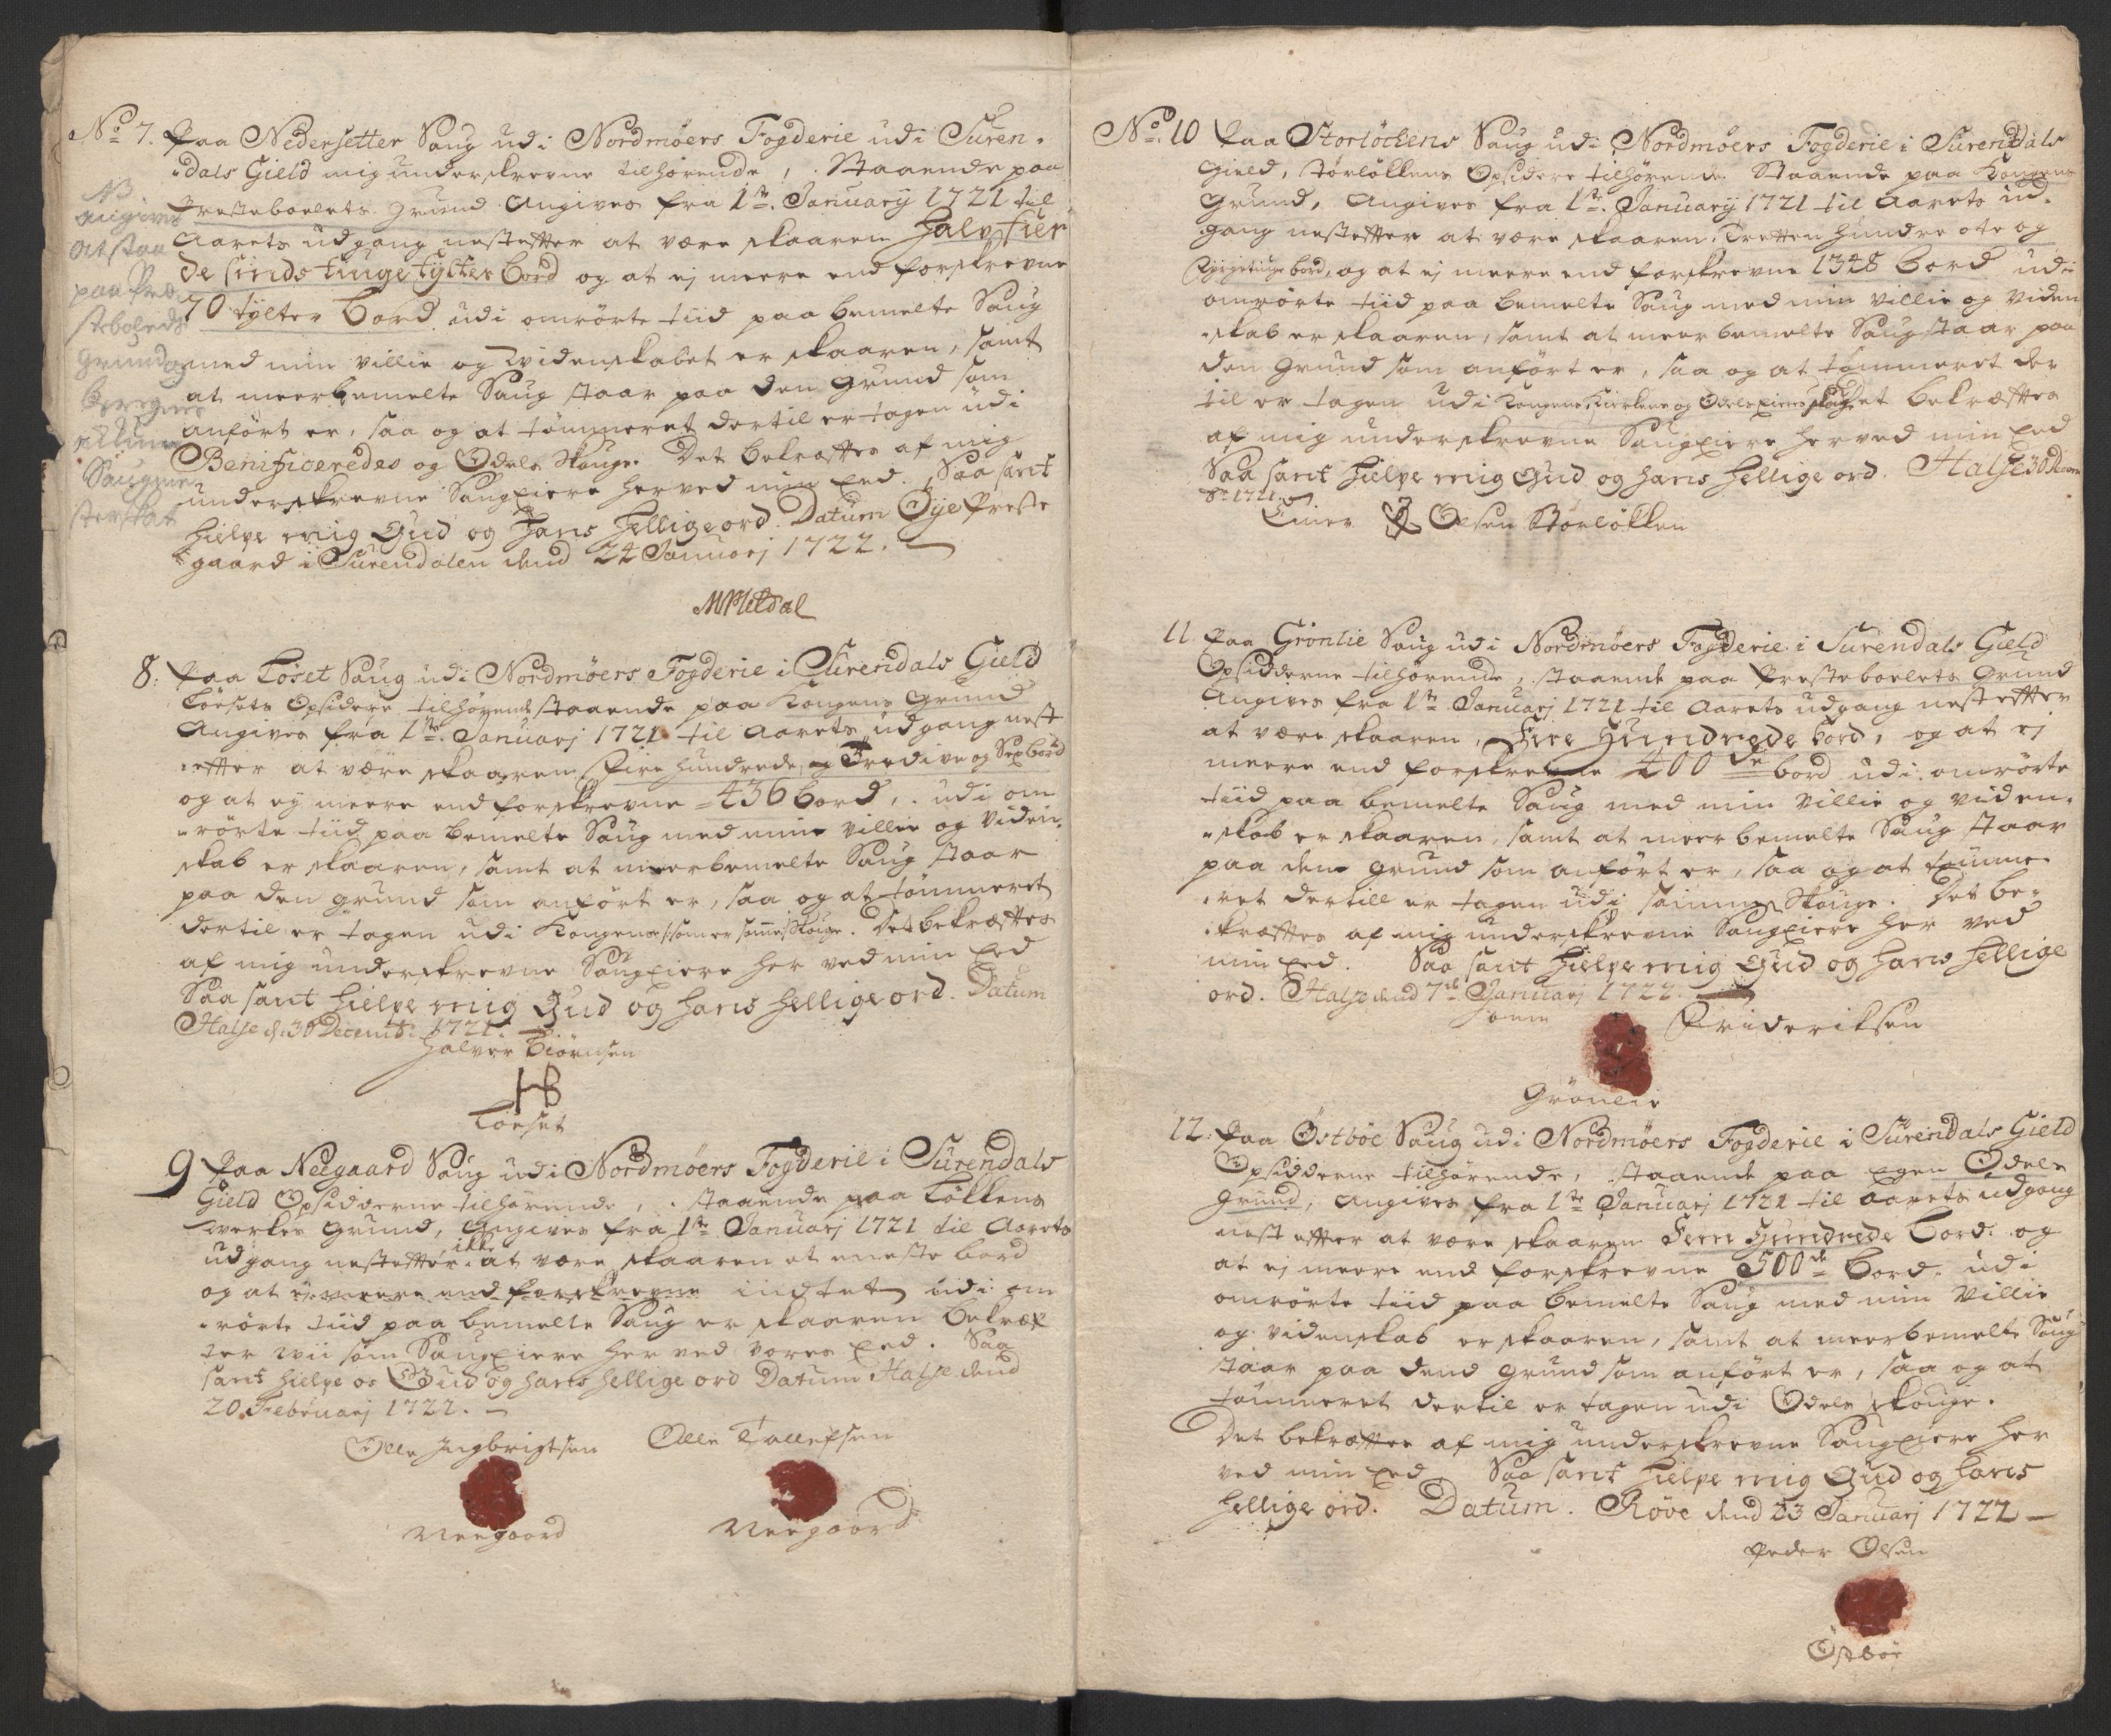 No 7. Paa Nedersetter Saug udi Nordmøers Fogderie udi Suren-
dals Gield mig underskrevne tilhørende, Staaende paa
Presteboelets Grund Angives fra 1te January 1721 til
Aarets udgang nestefter at være skaaren Halvfier
de sinds tiuge tylter Bord og at ej meere end forskrevne
70 tylter Bord udi omrørte tiid paa bemelte Saug
med min villie og Widenskabet er skaaren, samt
at meerbemelte Saug staar paa den Grund som
anført er, saa og at tømmeret dertil er tagen udi
Benificeredes og Odels Skouge. Det bekræftes af mig
underskrevne Saugeiere herved min Eed. Saa sant
hielpe mig Gud og Hans Hellige ord. Datum Øye Preste
gaard i Surendalen dend 24 Januarj 1722.
NB
angives
at staa
paa Pre
stebolets
Grund og
beregnes
Saugme
sterskat
MMeldal
8. Paa Løset Saug udi Nordmøers Fogderie i Surendals Gield
Løesets Opsidere tilhørende staaende paa Kongens Grund
Angives fra 1te Januarj 1721 til Aarets udgang nest
efter at være skaaren Fire hundrede og Tredive og Sex bord
og at ey meere end forskrevne 436 bord, udi om
rørte tiid paa bemelte Saug med min villie og viden-
skab er skaaren, samt at meerbemelte Saug staar
paa den grund som anført er, saa og at tømmeret
dertil er tagen udi Kongens som er samme Skouge. Det bekræftes
af mig underskrevne Saugeiere her ved min Eed
Saa sant hielpe mig Gud og hans hellige ord. Datum
Halse d. 30 Decembr: 1721.
Halvor Biørnsen
HB
Løeset
9 Paa Neegaard Saug udi Nordmøers Fogderie i Surendals
Gield Opsidderne tilhørende, staaende paa Løkkens
Werkes Grund, Angives fra 1te Januarj 1721 til Aarets
udgang nestefter ikke at være skaaren et eneste bord
og at ej meere end forskrevne indtet udi om
rørte tiid paa bemelte Saug er skaaren bekræf
ter wii som Saugeiere her ved vores Eed. Saa
sant hielpe os Gud og hans hellige ord Datum Halse dend
20 Februarj 1722.
Olle Ingbrigtsen Olle Tollefsen
Neegaard Neegaard
No. 10 Paa Storløckens Saug udi Nordmøers Fogderie i Surendals
Gield, Storløkkens Opsidere tilhørende Staaende paa Kongens
Grund, Angives fra 1te January 1721 til Aarets ud-
gang nestefter at være skaaren, Tretten hundre ote og
Fyrgetiuge bord, og at ej meere end forskrevne 1348 bord udi
omrørte tiid paa bemelte Saug med min villie og viden
skab er skaaren, samt at meerbemelte Saug staar paa
den Grund som anført er, saa og at tømmeret der
til er tagen udi Kongens, Kierkens og Odels Skouget bekræftes
af mig underskrevne Saugeiere herved min Eed
Saa sant hielpe mig Gud og hans hellige ord. Halse 30 Decem
br 1721.
Einer Olsen Storløkken
11. Paa Grønlie Saug udi Nordmøers Fogderie i Surendals Gield
Opsidderne tilhørende, staaende paa Presteboelets Grund
Angives fra 1te Januarj 1721 til Aarets udgang nestefter
at være skaaren, Fire Hundrede bord, og at ej
meere end forskrevne 400de bord udi omrørte
tiid paa bemelte Saug med min villie og viden-
skab er skaaren, samt at meer bemelte Saug staar
paa den grund som anført er, saa og at tømme-
ret dertill er tagen udi samme Skouge. Det be-
kræftes af mig underskrevne Saugeiere her ved
min Eed. Saa sant hielpe mig Gud og hans hellige
ord. Halse dend 7de Januarj 1722.
Joen Frideriksen
Grønlie
12. Paa Østbøe Saug udi Nordmøers Fogderie i Surendals Gield
Opsidderne tilhørende, staaende paa Egen Odels
Grund, Angives fra 1te Januarj 1721 til Aarets udgang
nestefter at være skaaren Fem Hundrede bord. og
at ej meere end forskrevne 500de bord. udi
omrørte tiid paa bemelte Saug med min Villie
og videnskab er skaaren, samt at meerbemelte Saug
staar paa dend Grund som anført er, saa og at
tømmeret dertil er tagen udi Odels skouge.
Det bekræftes af mig underskrevne Saugeiere her
ved min Eed Saa sant hielpe mig Gud og hans
hellige ord. Datum. Røve dend 23 Januarj 1722
Peder Olsen
Østbøe